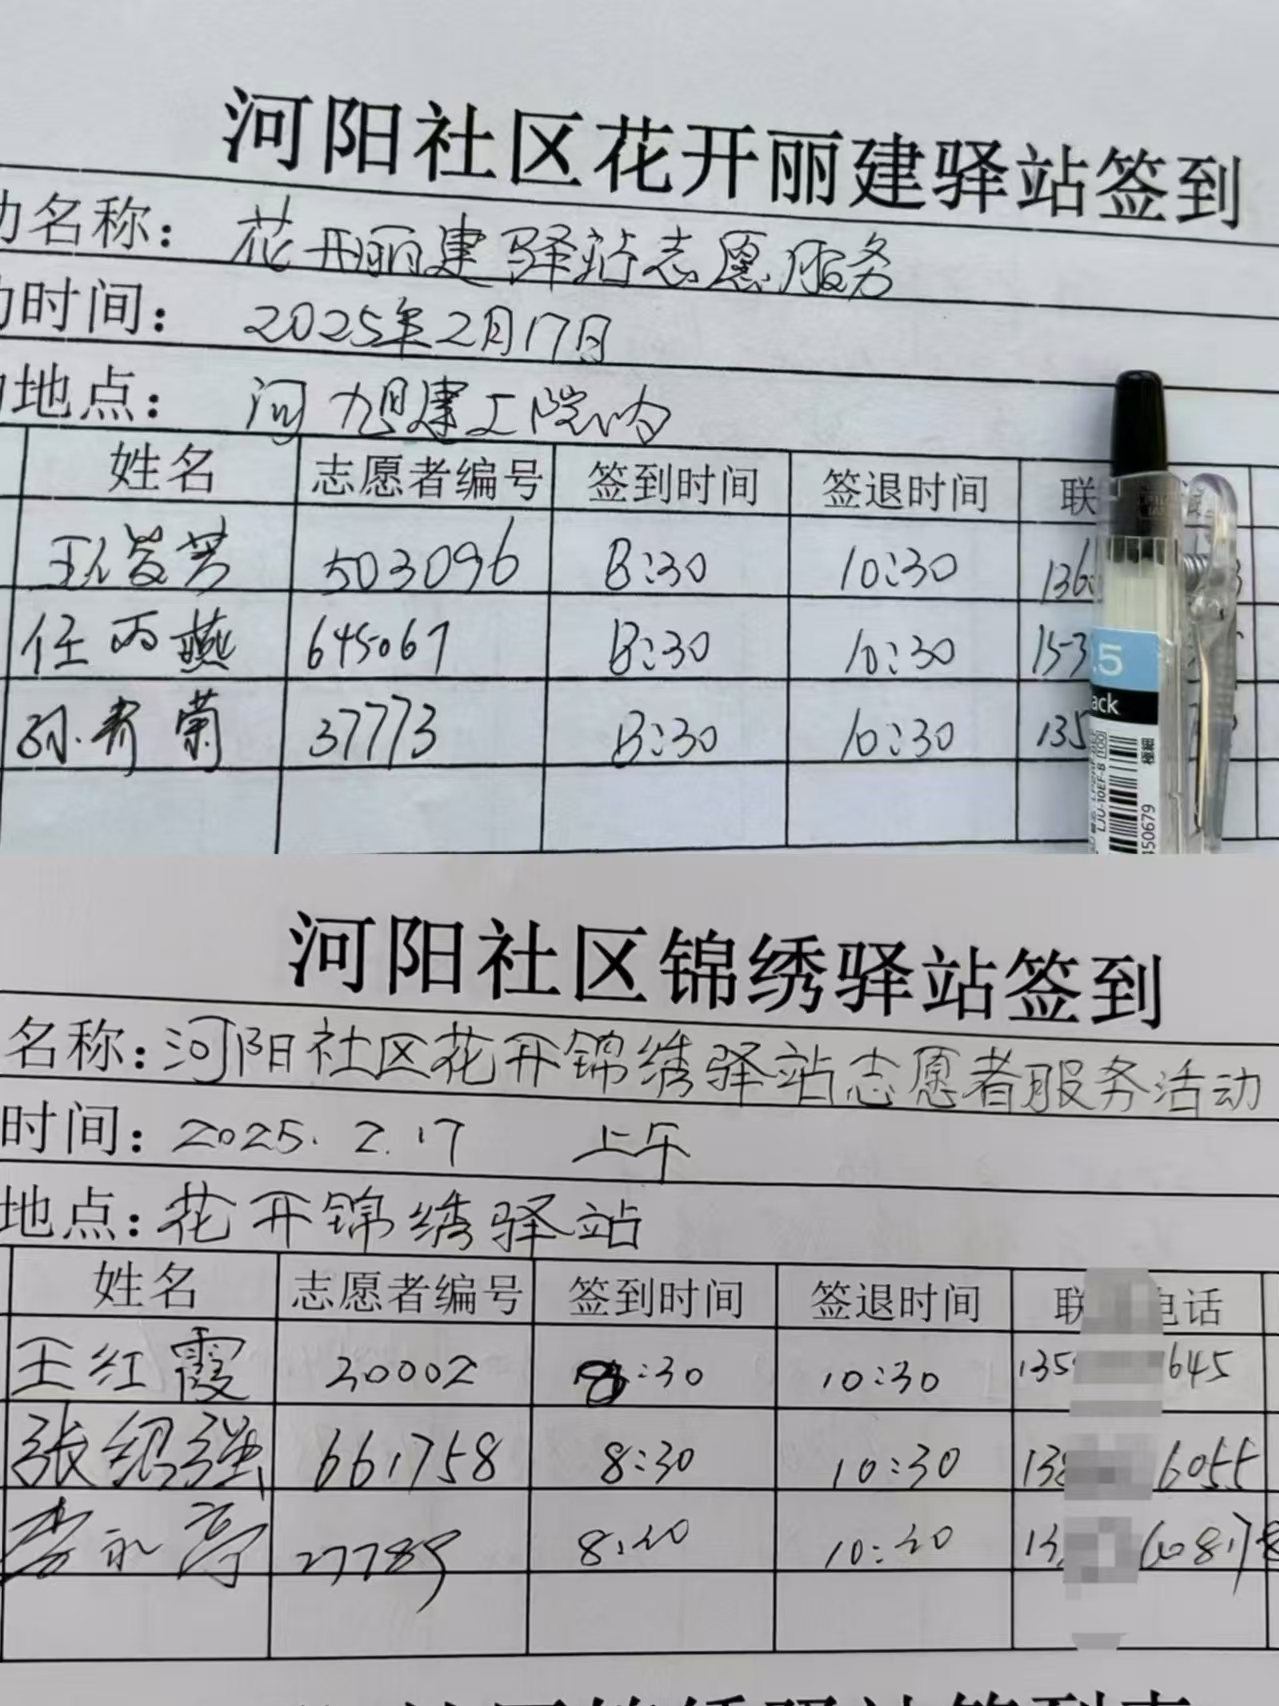 河阳社区花开丽建驿站签到
动名称：花开丽建驿站志愿服务
动时间：2025年2月17日
地点：河阳建工院内
姓名 志愿者编号 签到时间 签退时间 联
503096 8:30 10:30 136
任丙燕 645067 8:30 10:30 153
孙青菊 37773 8:30 10:30 135
.5
ack
LJU-10EF-B [100]
極細
450679
河阳社区锦绣驿站签到
名称：河阳社区花开锦绣驿站志愿者服务活动
时间：2025.2.17 上午
地点：花开锦绣驿站
姓名 志愿者编号 签到时间 签退时间 联 电话
王红霞 20002 8:30 10:30 135 645
张绍强 661758 8:30 10:30 138 6055
李永亮 27789 8:30 10:30 13